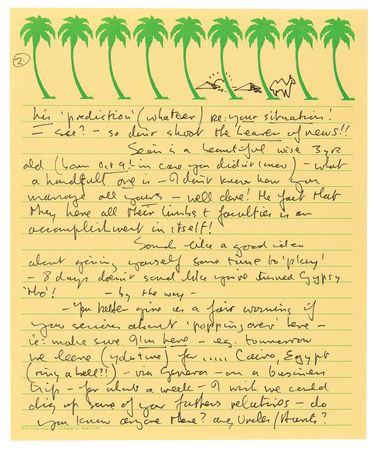 2.
his 'prediction' (whatever) re: your situation!
I see? - so don't shoot the bearer of news!!
Sean is a beautiful wise 3 yr
old (born Oct 9! in case you didn't know) - what
a handfull one is - I don't know how you
manage all yours - well done! The fact that
they have all their limbs + faculties is an
accomplishment in itself!
Sounds like a good idea
about giving yourself some time to 'play'!
- 8 days doesn't sound like you've turned Gypsy
'tho'! - by the way -
- You better give us a fair warning if
your serious about 'popping over' here -
ie: make sure I'm here - eg. tomorrow
we leave (y
) for ..... Cairo, Egypt
(ring a bell?!) - via Geneva - on a business
trip - for about a week - I wish we could
dig up some of your fathers relatives - do
you know anyone there? any Uncles/Aunts?